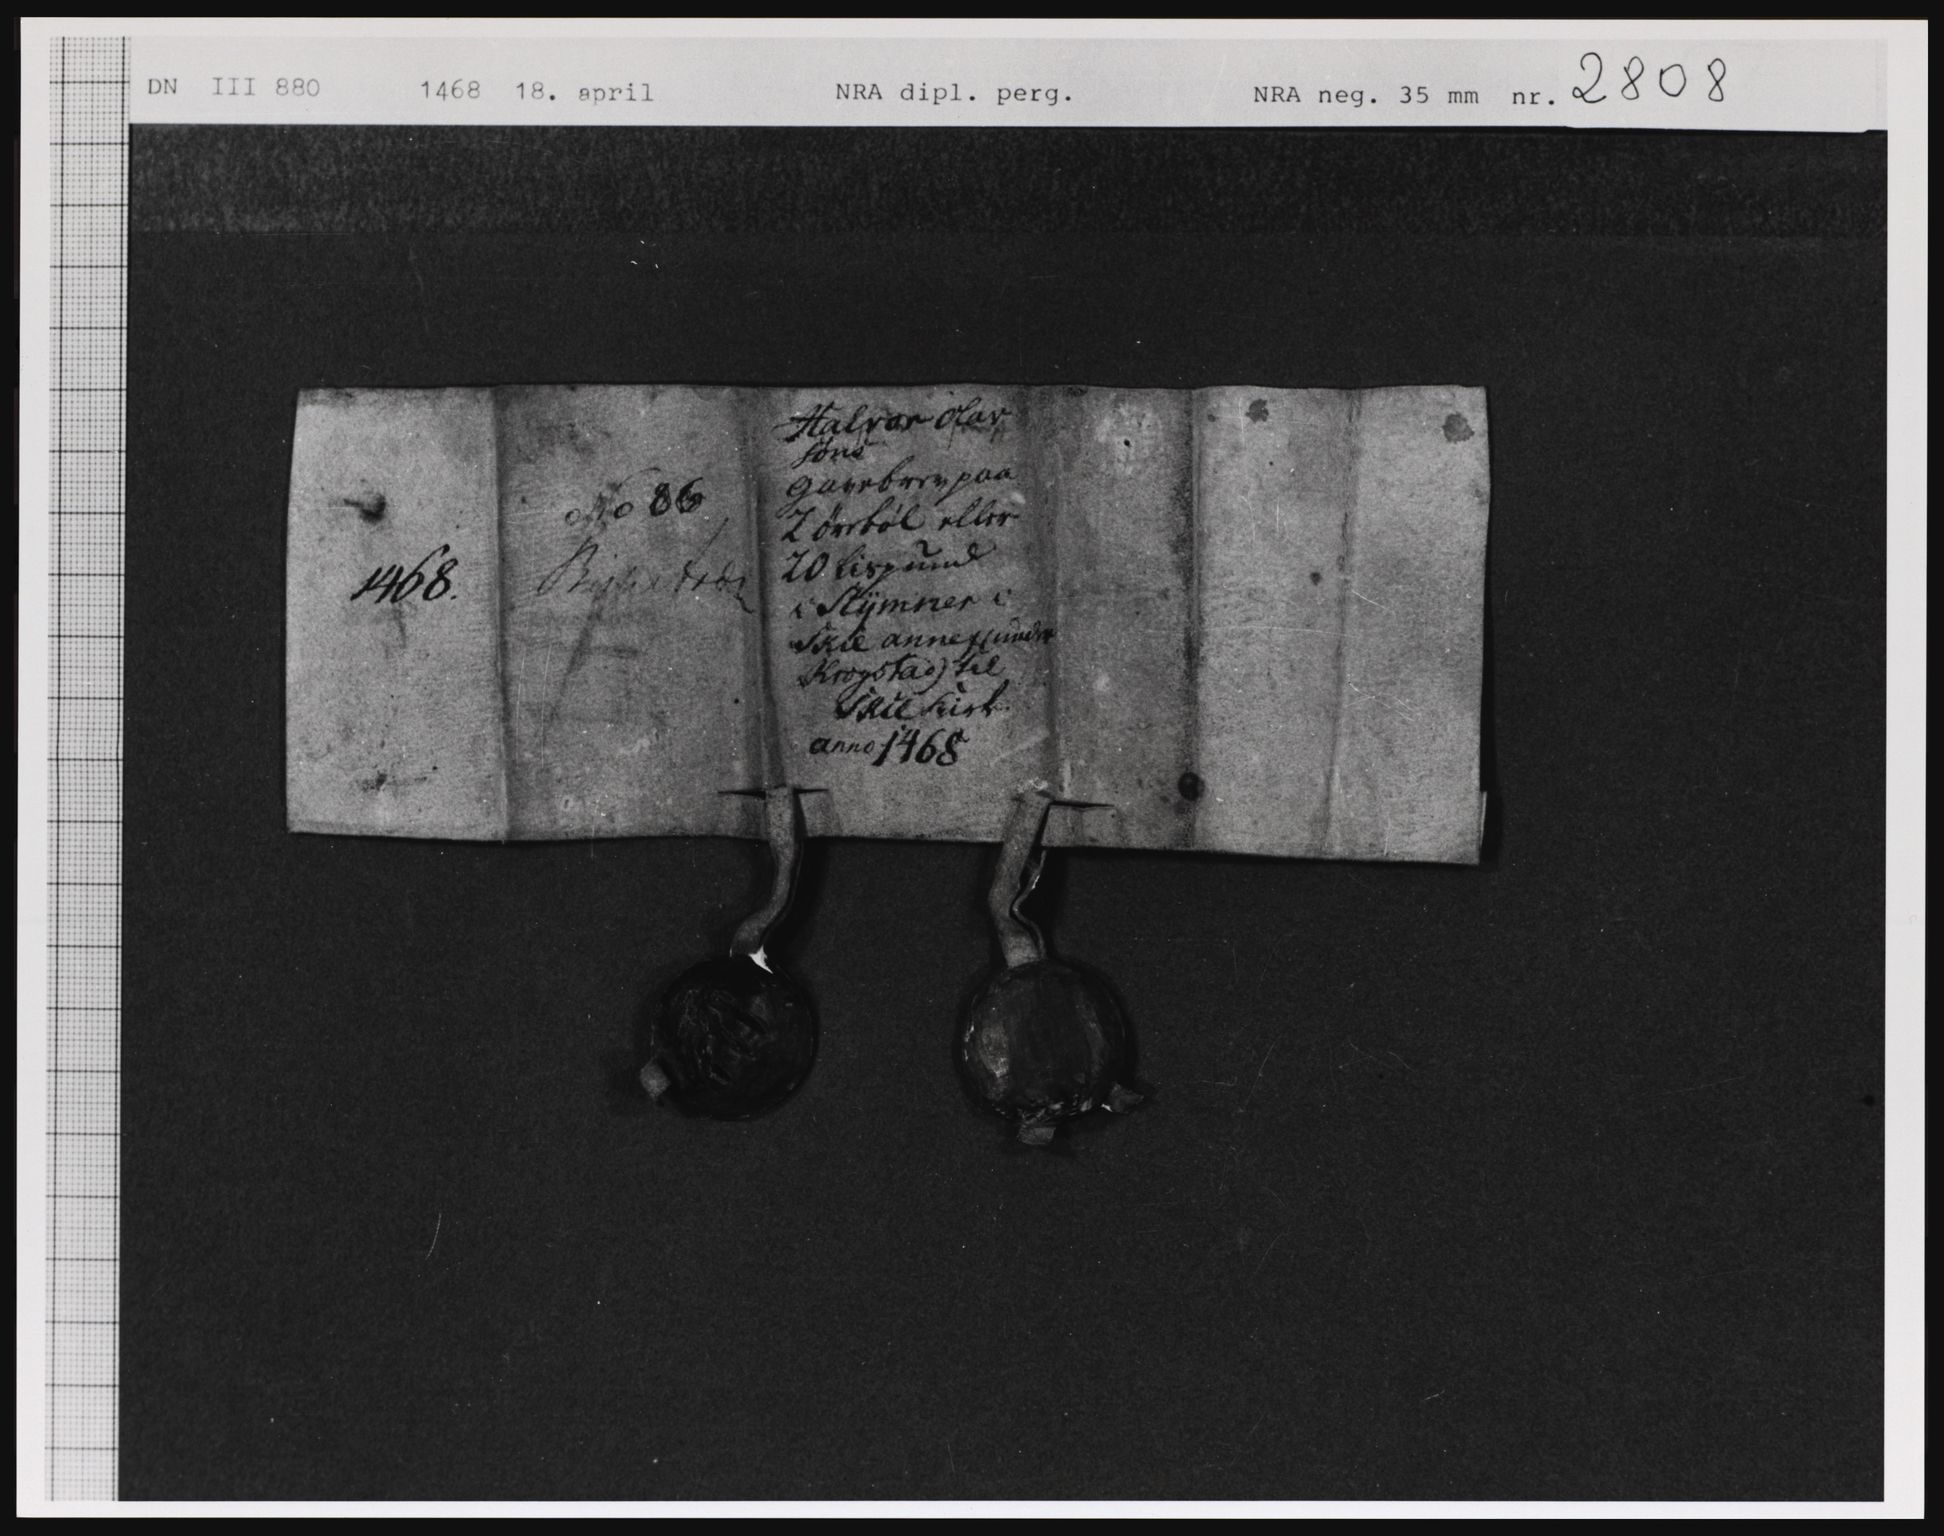 DN III 880 1468 18. april NRA dipl. perg. NRA neg. 35 mm nr. 2808
1468.
No 86
Halvor Olav
söns
gavebrev paa
2 öresból eller
20 lispund
i Slÿmner i
Skie annex (under
Krogstad) til
Skie kirk
anno 1468